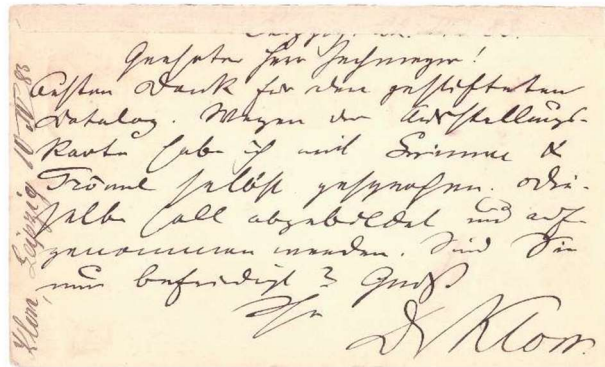 Geehrter Herr Sechmeyer!
besten Dank für den gestifteten
Katalog. Wegen der Ausstellungs-
karte habe ich mit Grimme &
Trömel selbst gesprochen. Die-
selbe soll abgebildet und auf-
genommen werden. Sind Sie
nun befriedigt? Gruß
Ihr
Dr Kloss.
Leipzig 10 IV 83